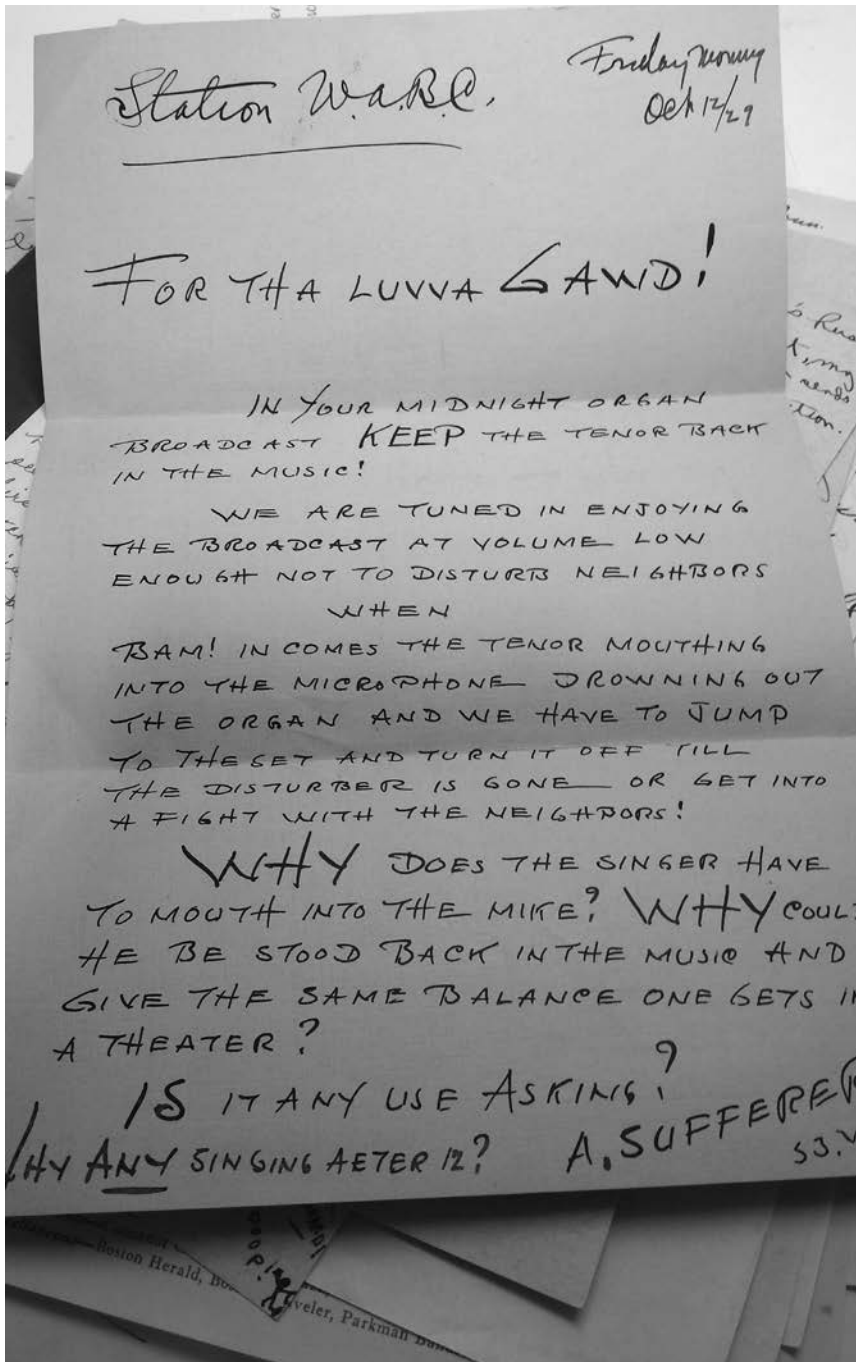 Station W.A.B.C.
Friday Morning
Oct 12/29
FOR THA LUVVA GAWD!
IN YOUR MIDNIGHT ORGAN
BROADCAST KEEP THE TENOR BACK
IN THE MUSIC!
WE ARE TUNED IN ENJOYING
THE BROADCAST AT VOLUME LOW
ENOUGH NOT TO DISTURB NEIGHBORS
WHEN
BAM! IN COMES THE TENOR MOUTHING
INTO THE MICROPHONE DROWNING OUT
THE ORGAN AND WE HAVE TO JUMP
TO THE SET AND TURN IT OFF TILL
THE DISTURBER IS GONE OR GET INTO
A FIGHT WITH THE NEIGHBORS!
WHY DOES THE SINGER HAVE
TO MOUTH INTO THE MIKE? WHY COUL
HE BE STOOD BACK IN THE MUSIC AND
GIVE THE SAME BALANCE ONE GETS IN
A THEATER?
IS IT ANY USE ASKING?
A. SUFFERER
WHY ANY SINGING AFTER 12?
Boston Herald,
veler, Parkman